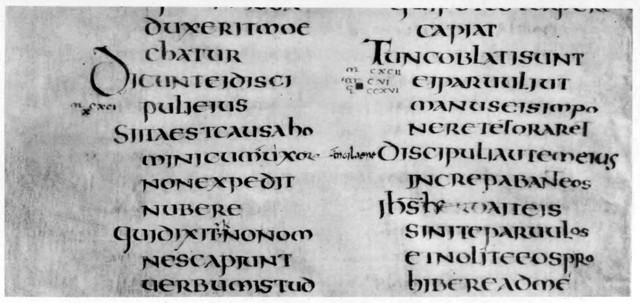 DUXERITMOE
CHATUR
DICUNTEIDISCI
PULIEIUS
SIITAESTCAUSAHO
MINICUMUXOR
NONEXPEDIT
NUBERE
QUIDIXITNONOM
NESCAPIUNT
UERBUMISTUD
CAPIAT
TUNCOBLATISUNT
m CXCII
EIPARUULIUT
CCXVI
MANUSEISIMPO
NERETETORARET
DISCIPULIAUTEMEIUS
INCREPABANTEOS
IHS AITEIS
SINITEPARUULOS
ETNOLITEEOSPRO
HIBEREADME